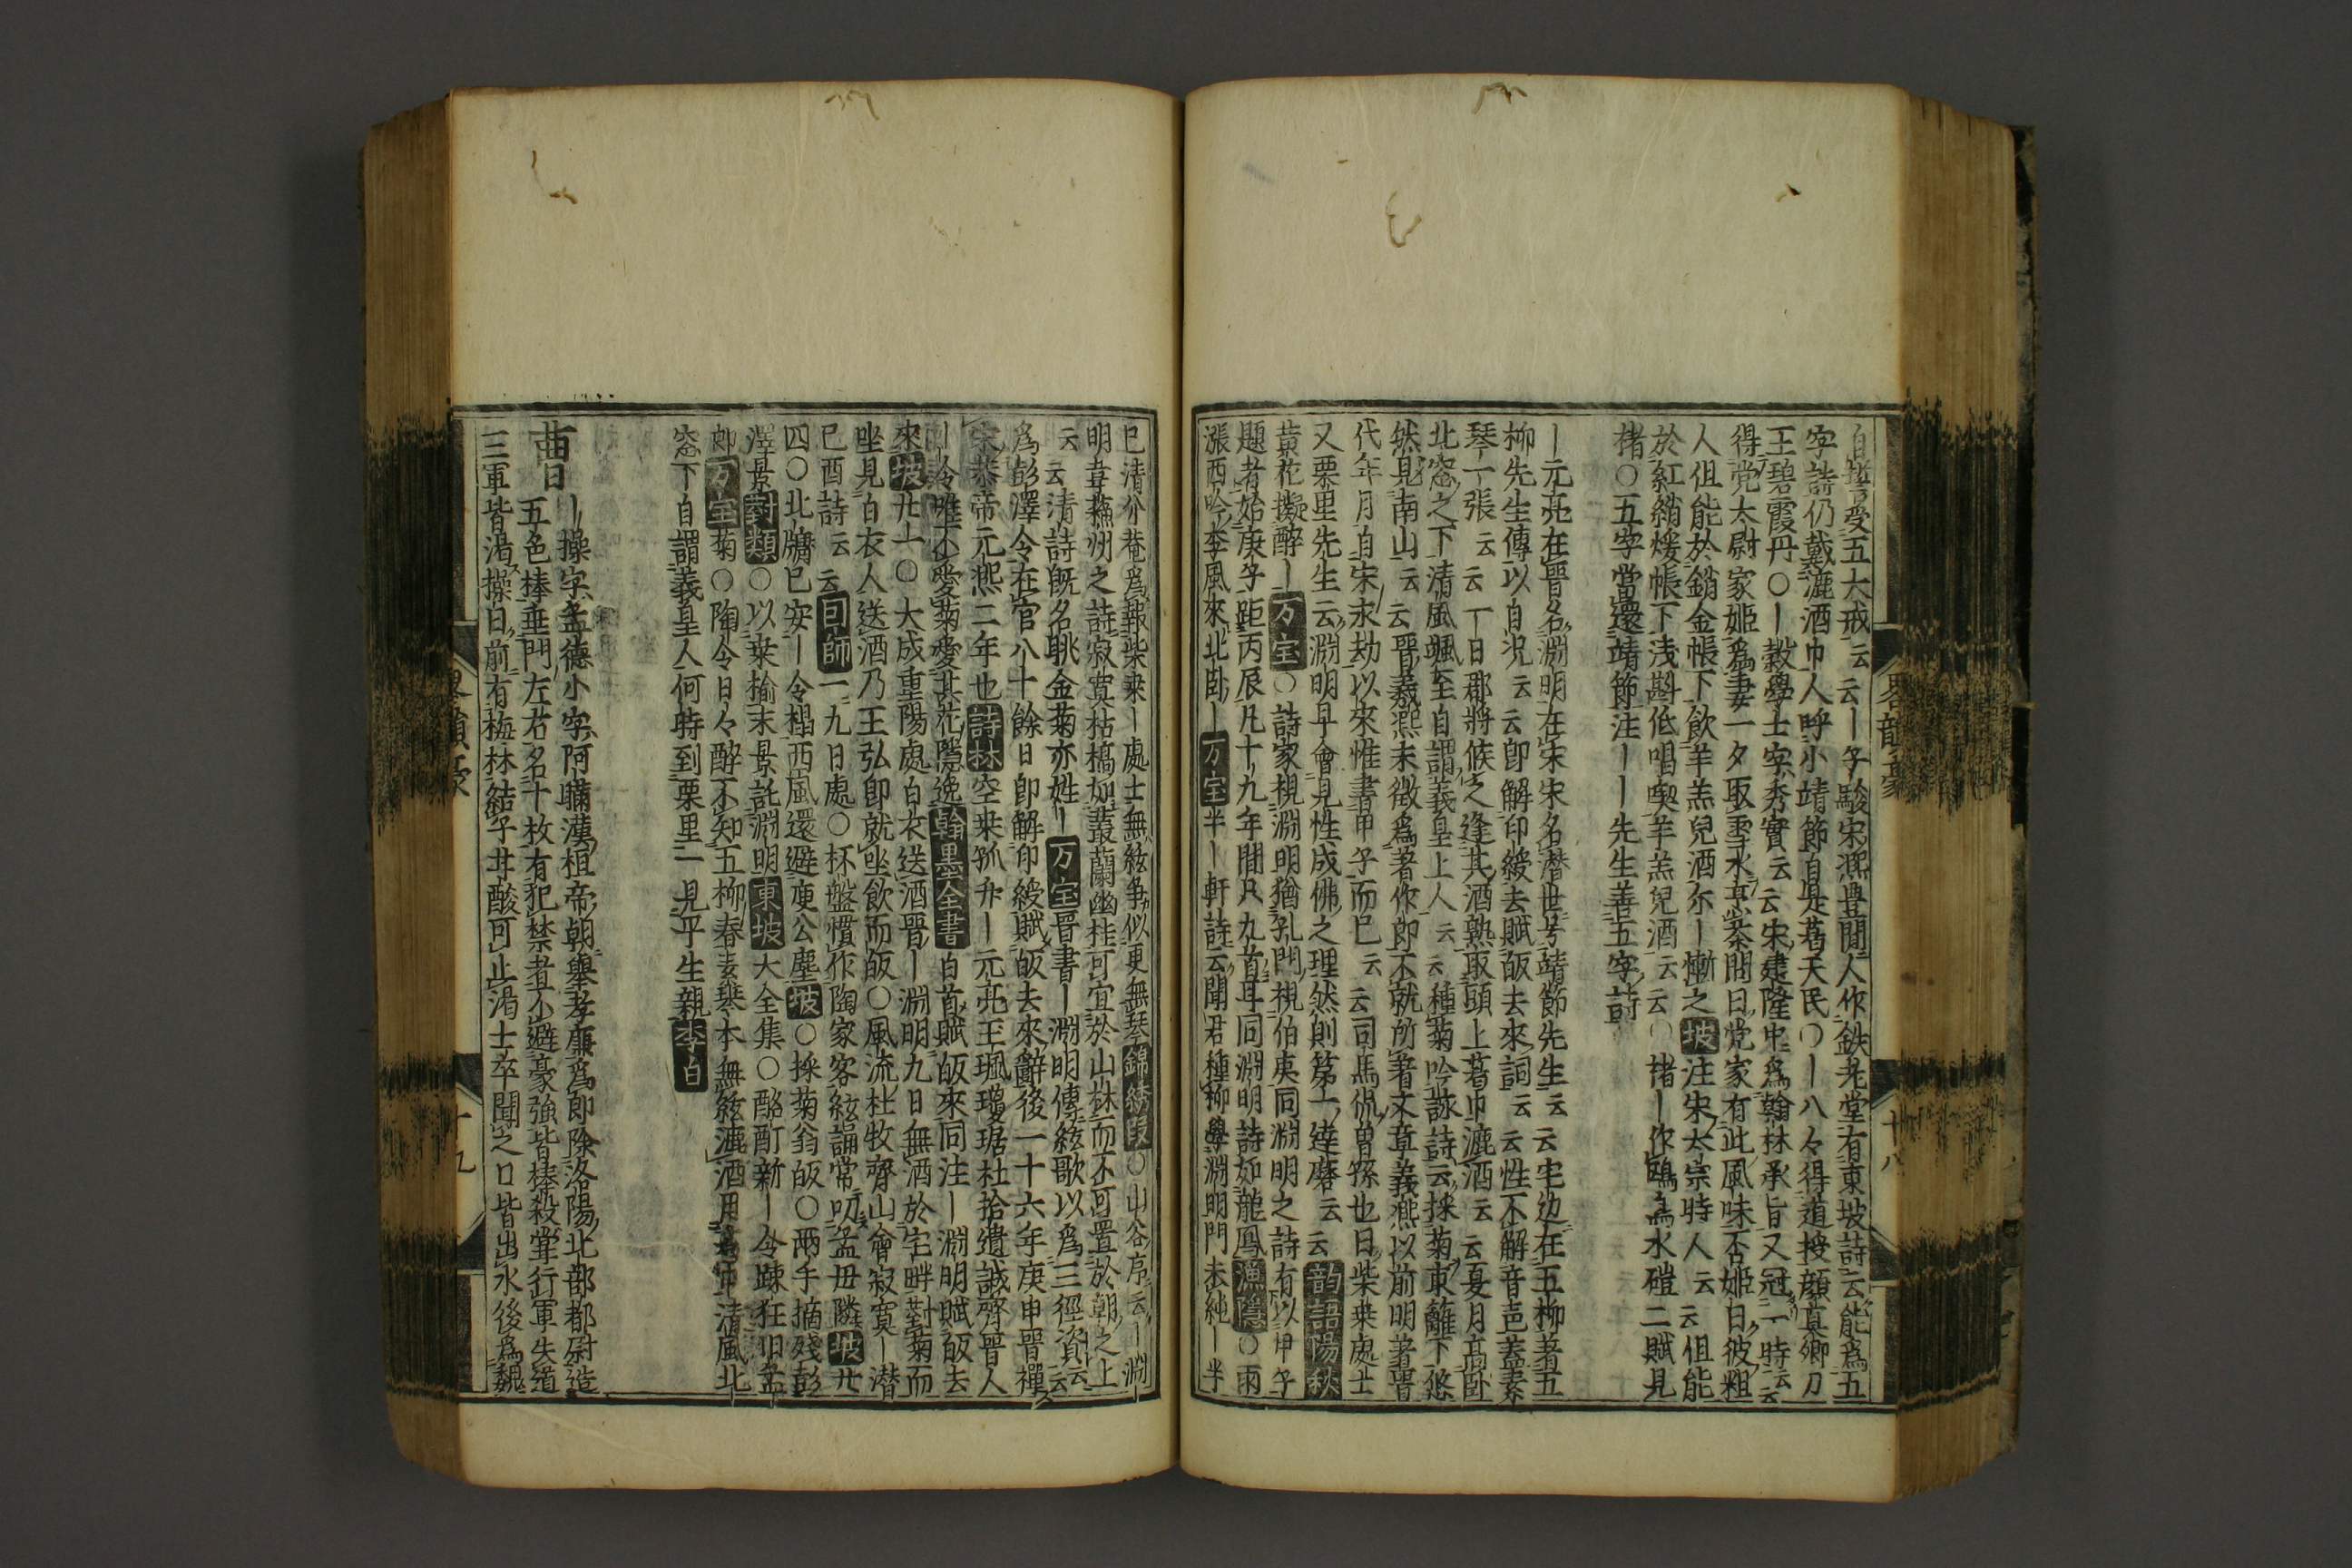 自誓受五大戒云云｜子駿宋凞豊間人作鉄老堂有東坡詩云能爲五
字詩仍戴漉酒巾人呼小靖節自是葛天民〇｜八々得道授顔真卿刀
王碧霞丹〇｜穀學士字秀實云云宋建隆中爲翰林承旨又冠一時云云
得党太尉家姬爲妻一夕取雪水烹茶問曰党家有此風味否姬曰彼粗
人但能於銷金帳下飲羊羔兒酒尓｜慚之坡注宋太宗時人云云但能
於紅綃煖帳下浅斟低唱喫羊羔兒酒云云〇禇｜作鷗為水磑二賦見
禇〇五字當還靖節注｜｜先生善五字詩
｜元亮在晋名淵明在宋宋名潛世号靖節先生云云宅边在五柳著五
柳先生傳以自况云云卽解印綬去賦皈去來詞云云性不解音声蓋素
琴一張云云一日郡將候之逢其酒熟取頭上葛巾漉酒云云夏月高卧
北窓之下清風颯至自謂義皇上人云云種菊吟詠詩云採菊東籬下悠
然見南山云云晋義凞末徴爲著作郎不就所著文章義凞以前明著晋
代年月自宋永劫以來惟書甲子而已云云司馬侃曽孫也曰柴桒處士
又栗里先生云淵明早會見性成佛之理然則第一達磨云云韵語陽秋
黄花擬醉｜万宝〇詩家視淵明猶孔門視伯夷同淵明之詩有以甲子
題者始庚子距丙辰凡十九年間只九首耳同淵明詩如龍鳳漁隱〇兩
漲西吟李風來北卧｜万宝半｜軒詩云聞君種柳學淵明門未純｜半
巳清分菴爲報柴桒｜處士無絃争似更無琴錦綉段〇山谷序云｜淵
明韋蘓州之詩寂寞枯槁如叢蘭幽桂可宜於山林而不可置於朝之上
云云清詩旣名眺金菊亦姓｜万宝晋書｜淵明傳絃歌以爲三徑資云云
爲彭澤令在官八十餘日卽解印綬賦皈去來辭後一十六年庚申晋禪
宋恭帝元凞二年也詩林空桒孤舟｜元亮王珮瓊琚杜拾遺誠齊晋人
｜令唯不愛菊愛其花隱逸翰墨全書白首賦皈來同注｜淵明賦皈去
來坡廿一〇大成重陽處白衣送酒晋｜淵明九日無酒於宅畔對菊而
坐見白衣人送酒乃王弘卽就坐飲而皈〇風流杜牧齊山會寂寞｜潜
已酉詩云云曰師一九日處〇杯盤慣作陶家客絃誦常叨孟母隣坡廿
四〇北牗已安｜令榻西風還避庾公塵坡〇採菊翁皈〇兩手摘殘彭
澤景對類〇以桒榆末景託淵明東坡大全集〇酩酊新｜令踈狂旧孟
郎万宝菊〇陶令日々醉不知五柳春素琹本無絃漉酒用葛巾清風北
窓下自謂義皇人何時到栗里一見平生親李白
曹
｜操字孟德小字阿瞞漢祖帝朝舉孝廉爲郎除洛陽北部都尉造
五色棒垂門左右名十枚有犯禁者不避豪強皆棒殺業行軍失道
三軍皆渇操曰前有梅林結子甘酸可止渇士卒聞之口皆出水後爲魏
略韻豪
十八
十九